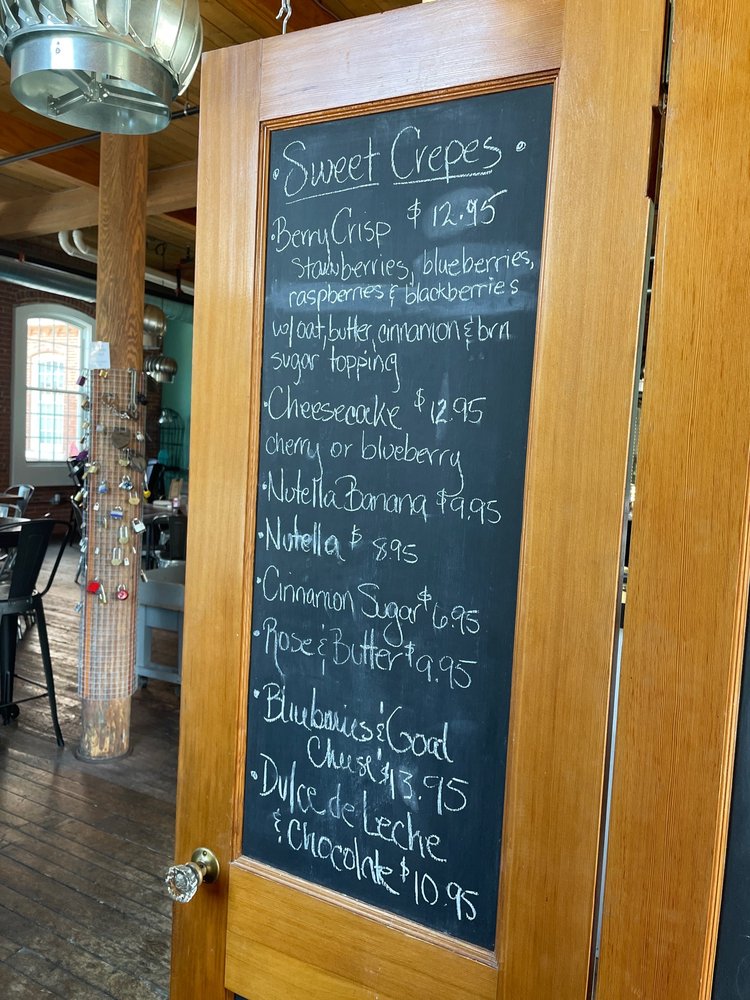 • Sweet Crepes •
• Berry Crisp $12.95
strawberries, blueberries,
raspberries & blackberries
w/oat, butter, cinnamon & brn
sugar topping
• Cheesecake $12.95
cherry or blueberry
• Nutella Banana $9.95
• Nutella $8.95
• Cinnamon Sugar $6.95
• Rose & Butter $9.95
• Blueberries & Goat
Cheese $13.95
• Dulce de Leche
& Chocolate $10.95